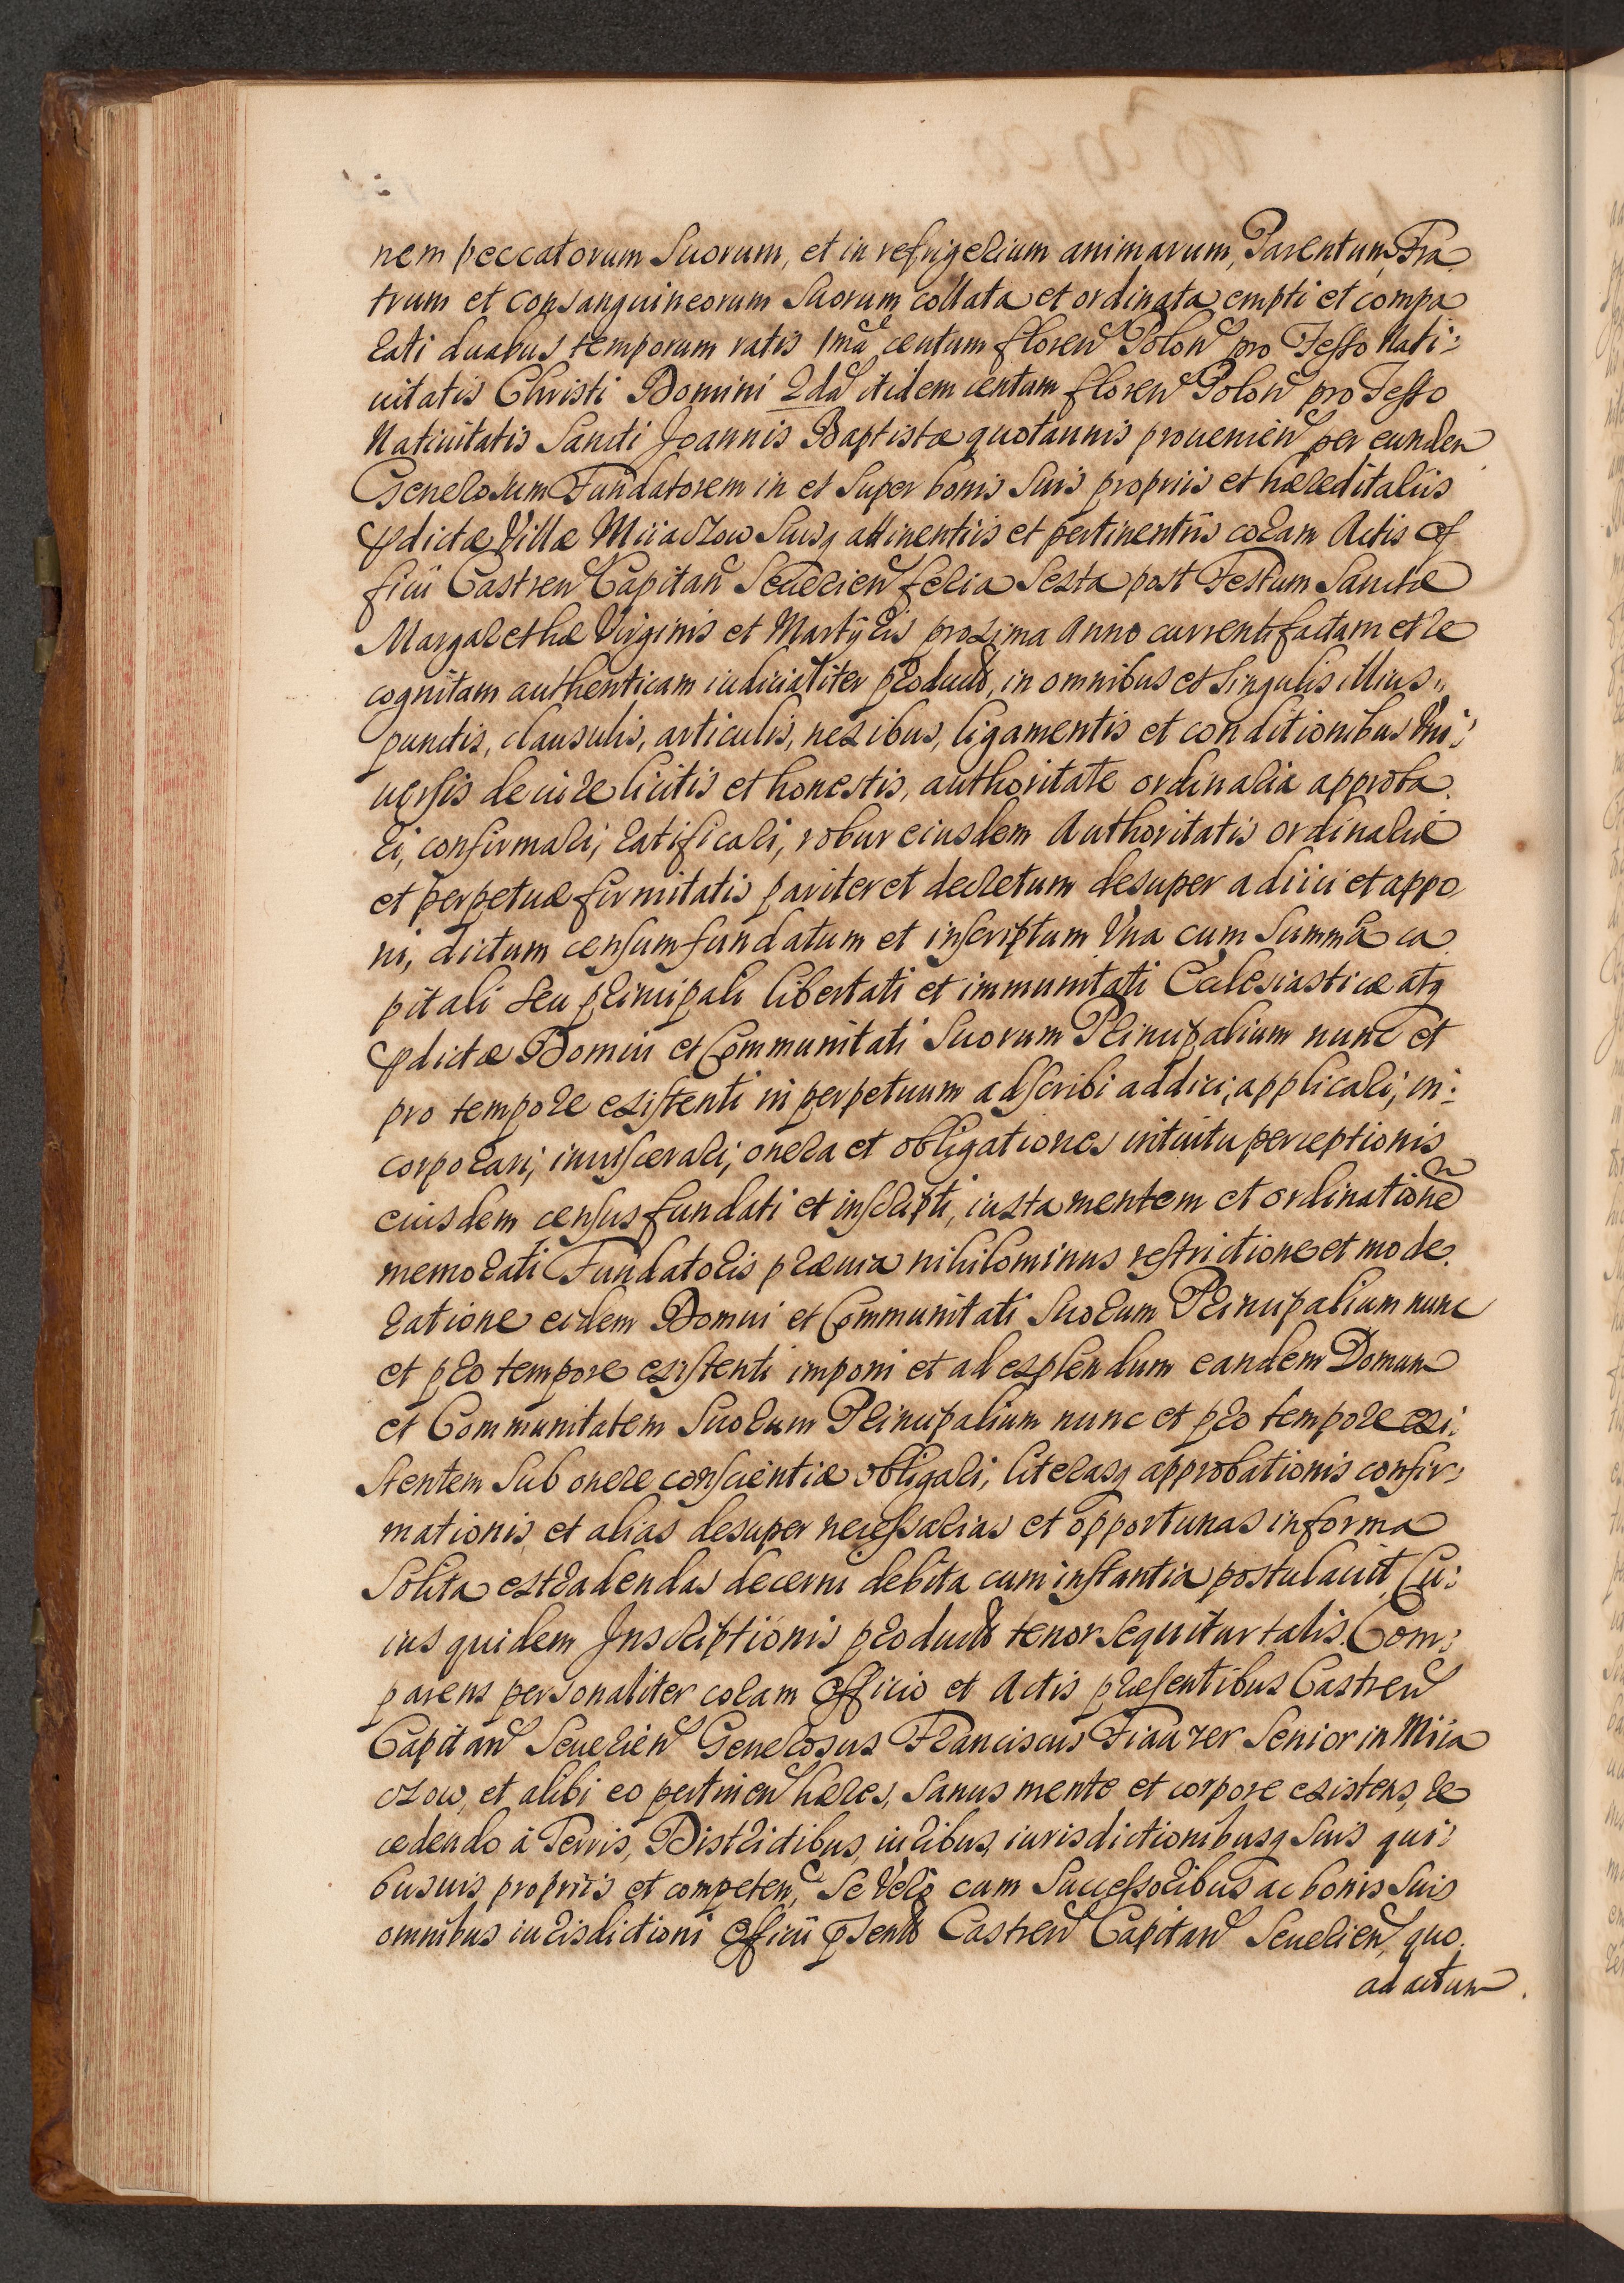 nem peccatorum Suorum, et in refrigerium animarum, Parentum, Fra
trum et consanguineorum Suorum collata et ordinata empti et compa
rati duabus temporum ratis 1ma centum floren Polon pro Festo Nati:
uitatis Christi Domini 2da itidem centum floren Polon pro Festo
Natiuitatis Sancti Joannis Baptistæ quotannis prouenien per eundem
Generosum Fundatorem in et Super bonis Suis propriis et hæreditariis
pdictæ Villæ Miiaczow Suisq attinentiis et pertinentiis coram Actis Of
ficii Castren Capitan Seuerien feria Sexta post Festum Sanctæ
Margarethæ Virginis et Martÿris proxima Anno currenti factam et re
cognitam authenticam iudicialiter product, in omnibus et Singulis illius
punctis, clausulis, articulis, nexibus, ligamentis et conditionibus Vni:
uersis de iure licitis et honestis, authoritate ordinaria approba
ri, confirmari, ratificari, robur eiusdem Authoritatis ordinariæ
et perpetuæ firmitatis pariter et decretum desuper adiici et appo
ni, dictum censum fundatum et inscriptum Vna cum Summâ ca
pitali seu principali libertati et immunitati Ecclesiasticæ atq
pdictæ Domui et Communitati Suorum Principalium nunc et
pro tempore existenti in perpetuum adscribi addici, applicari, in:
corporari, inuiscerari, onera et obligationes intuitu perceptionis
eiusdem census fundati et inscripti, iuxta mentem et ordinatione
memorati Fundatoris præuia nihilominus restrictione et mode
ratione eidem Domui et Communitati Suorum Principalium nunc
et pro tempore existenti imponi et ad explendum eandem Domum
et Communitatem Suorum Principalium nunc et pro tempore exi:
stentem Sub onere conscientiæ obligari, literasq approbationis confir:
mationis, et alias desuper necessarias et opportunas in forma
Solita extradendas decerni debita cum instantia postulauit, Cu:
ius quidem Inscriptionis product tenor sequitur talis. Com:
parens personaliter coram Officio et Actis præsentibus Castren
Capitan Seuerien Generosus Franciscus Senior in Miia
czow, et alibi eo pertinen hæres, Sanus mente et corpore existens, re
cedendo à Terris, Districtibus, iuribus, iurisdictionibusq Suis qui:
busuis, propriis et competen, Se Vero cum Successoribus ac bonis Suis
omnibus iurisdictioni Officii psent Castren Capitan Seuerien, quo
ad actum